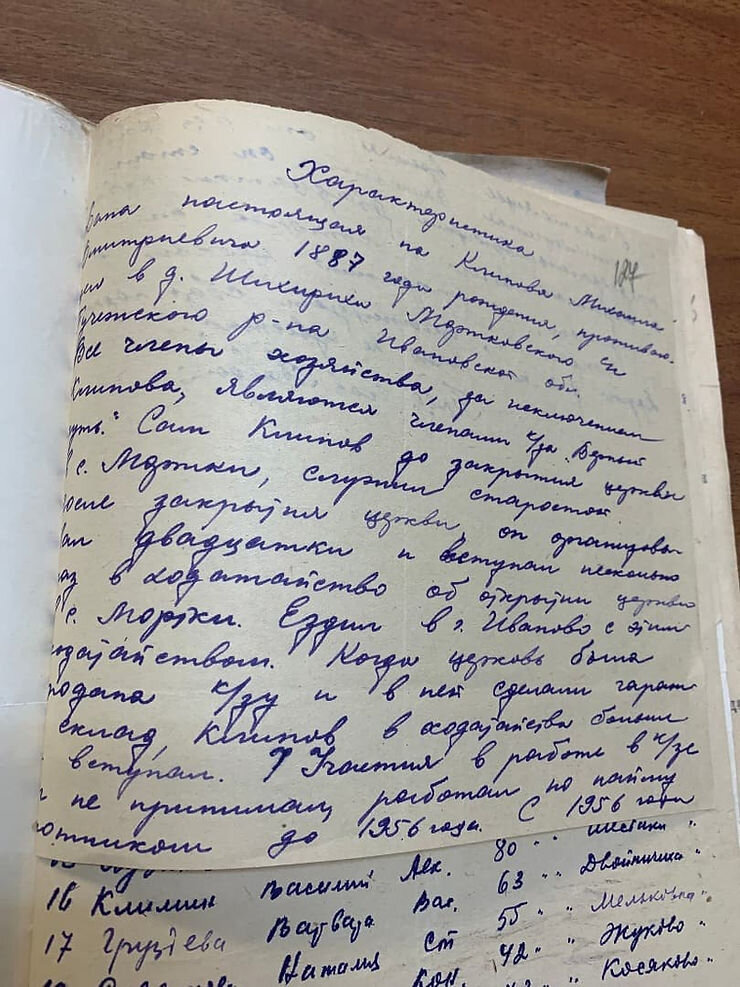 Характеристика
дана настоящая на Климова Михаила
187
Дмитриевича 1887 года рождения, проживаю-
щего в д. Шихириха Мортковского с/с
Пучежского р-на Ивановской обл.
Все члены хозяйства, за исключением
Климова, являются членами к/за "Верный
путь." Сам Климов до закрытия церкви
в с. Мортки, служил старостой.
После закрытия церкви, он организовы-
вал двадцатки и вступал несколько
раз в ходатайство об открытии церкви
в с. Мортки. Ездил в г. Иваново с этим
ходатайством. Когда церковь была
продана к/зу и в ней сделали гараж
склад, Климов в ходатайства больше
вступал. Участия в работе в к/зе
не принимал, работал по найму
плотником до 1956 года. С 1956 года
80 " "
16 Климин Василий Лек. 63 " " Двойнишка "
17 Грузтева Варвара Вас. 55 " " Мельковка "
Наталия Ст 42 " " Жуково "
Кон. Косяково "